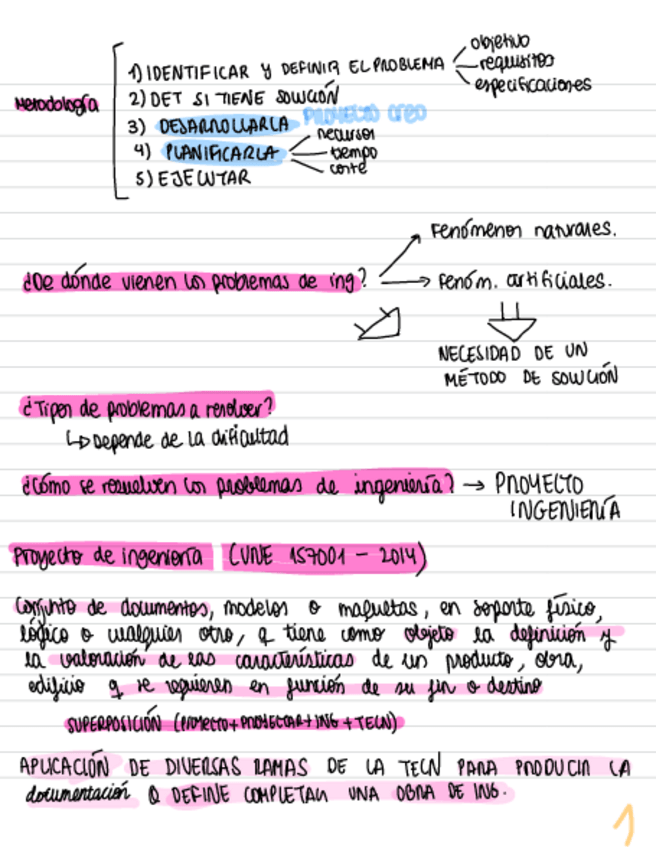 Metodología
1) IDENTIFICAR Y DEFINIR EL PROBLEMA
objetivo
requisitos
especificaciones
2) DET SI TIENE SOLUCIÓN
3) DESARROLLARLA PROYECTO CREO
4) PLANIFICARLA
recursos
tiempo
coste
5) EJECUTAR
¿De dónde vienen los problemas de ing?
Fenómenos naturales.
Fenóm. artificiales.
NECESIDAD DE UN
MÉTODO DE SOLUCIÓN
¿Tipos de problemas a resolver?
↳ Depende de la dificultad
¿Cómo se resuelven los problemas de ingeniería? → PROYECTO
INGENIERÍA
Proyecto de ingeniería (UNE 157001 - 2014)
Conjunto de documentos, modelos o maquetas, en soporte físico,
lógico o cualquier otro, q tiene como objeto la definición y
la valoración de las características de un producto, obra,
edificio q se requieren en función de su fin o destino
SUPERPOSICIÓN (PROYECTO+PROYECTAR+ING+TECN)
APLICACIÓN DE DIVERSAS RAMAS DE LA TECN PARA PRODUCIR LA
documentación Q DEFINE COMPLETAM UNA OBRA DE ING.
1